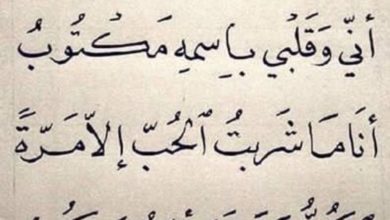 أنّي وَقَلبي بِاِسمِهِ مَكْتُوبُ
أنَا مَا شَرِبتُ ٱلحُبّ إلاّ مَرّةً